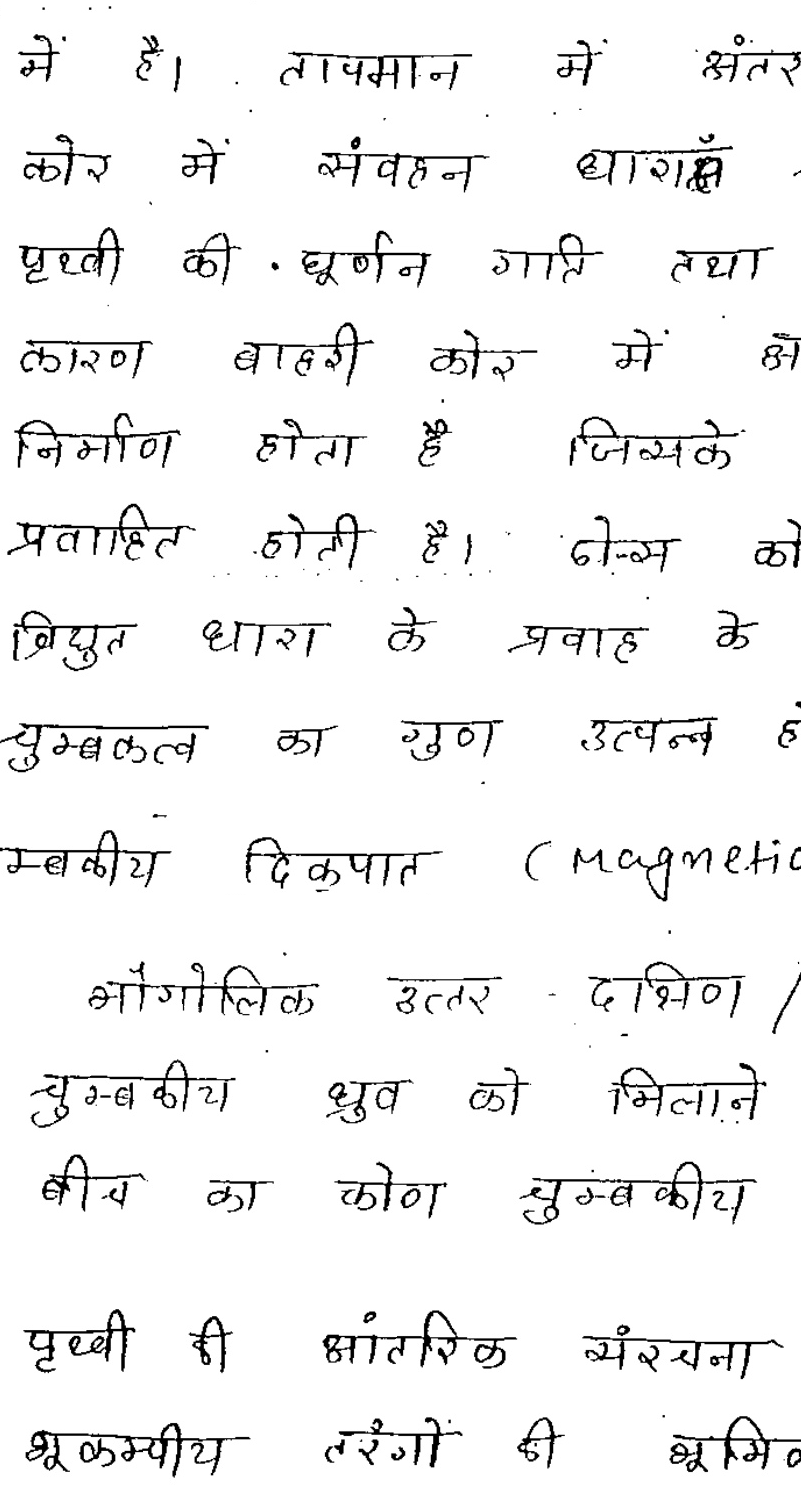 में है। तापमान में अंतर
कोर में संवहन धाराएँ
पृथ्वी की घूर्णन गति तथा
कारण बाहरी कोर में
निर्माण होता है जिसके
प्रवाहित होती है। ठोस को
विद्युत धारा के प्रवाह के
चुम्बकत्व का गुण उत्पन्न हो
म्बकीय दिक्पात (Magnetic
भौगोलिक उत्तर - दक्षिण /
चुम्बकीय ध्रुव को मिलाने
बीच का कोण चुम्बकीय
पृथ्वी की आंतरिक संरचना
भूकम्पीय तरंगों की भूमि